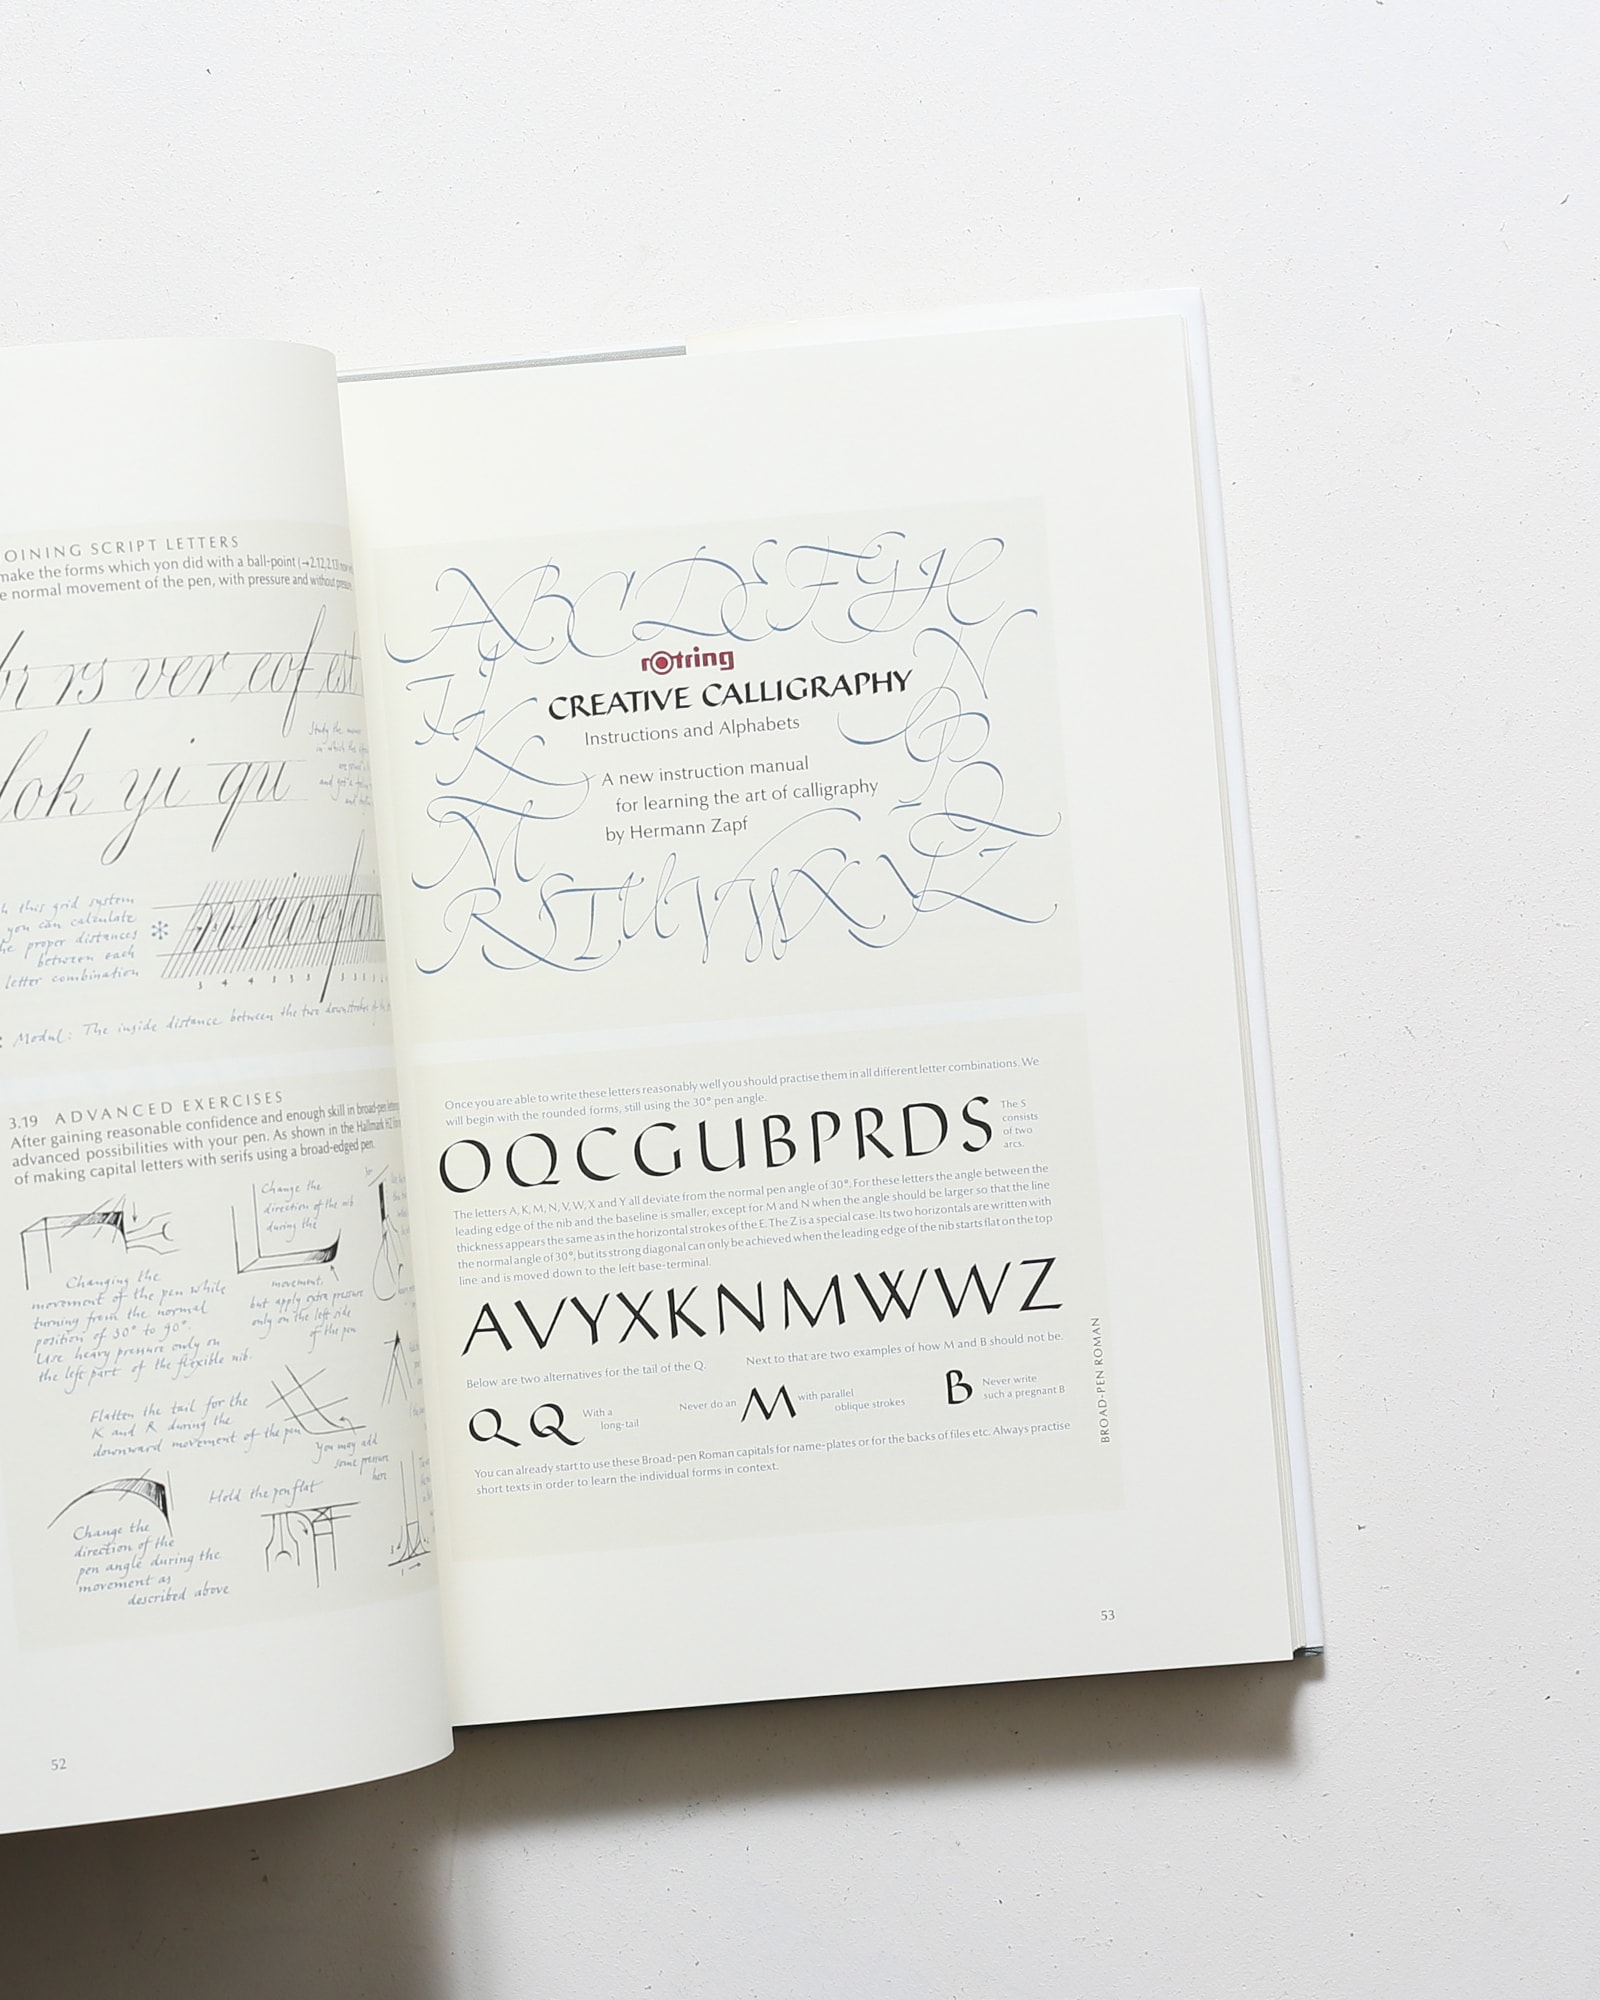 OINING SCRIPT LETTERS
make the forms which yon did with a ball-point (→2.12, 2.13
e normal movement of the pen, with pressure and without
rs ver eof est
lok yi qu
Study the
in which the
and
h this grid system
you can calculate
he proper distances
between each
letter combination
3 4 4 3 3 3 3 3 3
Modul: The inside distance between the two downstrokes of
3.19 ADVANCED EXERCISES
After gaining reasonable confidence and enough skill in broad-pen
advanced possibilities with your pen. As shown in the Hallmark HZ
of making capital letters with serifs using a broad-edged pen.
Changing the
movement of the pen while
turning from the normal
position of 30° to 90°.
Use heavy pressure only on
the left part of the flexible nib.
Change the
direction of the nib
during the
movement,
but apply extra pressure
only on the left side
of the pen
Flatten the tail for the
K and R during the
downward movement of the pen
You may add
some pressure
here
Change the
direction of the
pen angle during the
movement as
described above
Hold the pen flat
52
ABCDEFGH
rotring
CREATIVE CALLIGRAPHY
Instructions and Alphabets
A new instruction manual
for learning the art of calligraphy
by Hermann Zapf
I
K
L
M
N
P
Q
RSTUVWXYZ
Once you are able to write these letters reasonably well you should practise them in all different letter combinations. We
will begin with the rounded forms, still using the 30° pen angle.
OQCGUBPRDS
The S
consists
of two
arcs.
The letters A, K, M, N, V, W, X and Y all deviate from the normal pen angle of 30°. For these letters the angle between the
leading edge of the nib and the baseline is smaller, except for M and N when the angle should be larger so that the line
thickness appears the same as in the horizontal strokes of the E. The Z is a special case. Its two horizontals are written with
the normal angle of 30°, but its strong diagonal can only be achieved when the leading edge of the nib starts flat on the top
line and is moved down to the left base-terminal.
AVYXKNMWWZ
Below are two alternatives for the tail of the Q.
Next to that are two examples of how M and B should not be.
Q Q
With a
long-tail
Never do an
M
with parallel
oblique strokes
B
Never write
such a pregnant B
You can already start to use these Broad-pen Roman capitals for name-plates or for the backs of files etc. Always practise
short texts in order to learn the individual forms in context.
BROAD-PEN ROMAN
53